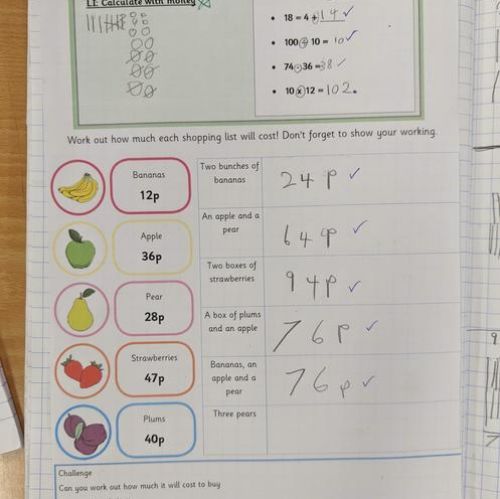 LI: Calculate with money
• 18 = 4 + 14
• 100 ÷ 10 = 10
• 74 - 36 = 38
• 10 x 12 = 102.
Work out how much each shopping list will cost! Don't forget to show your working.
Bananas
12p
Two bunches of
bananas
24 p
Apple
36p
An apple and a
pear
64p
Pear
28p
Two boxes of
strawberries
94p
A box of plums
and an apple
76p
Strawberries
47p
Bananas, an
apple and a
pear
76p
Plums
40p
Three pears
Challenge
Can you work out how much it will cost to buy
9